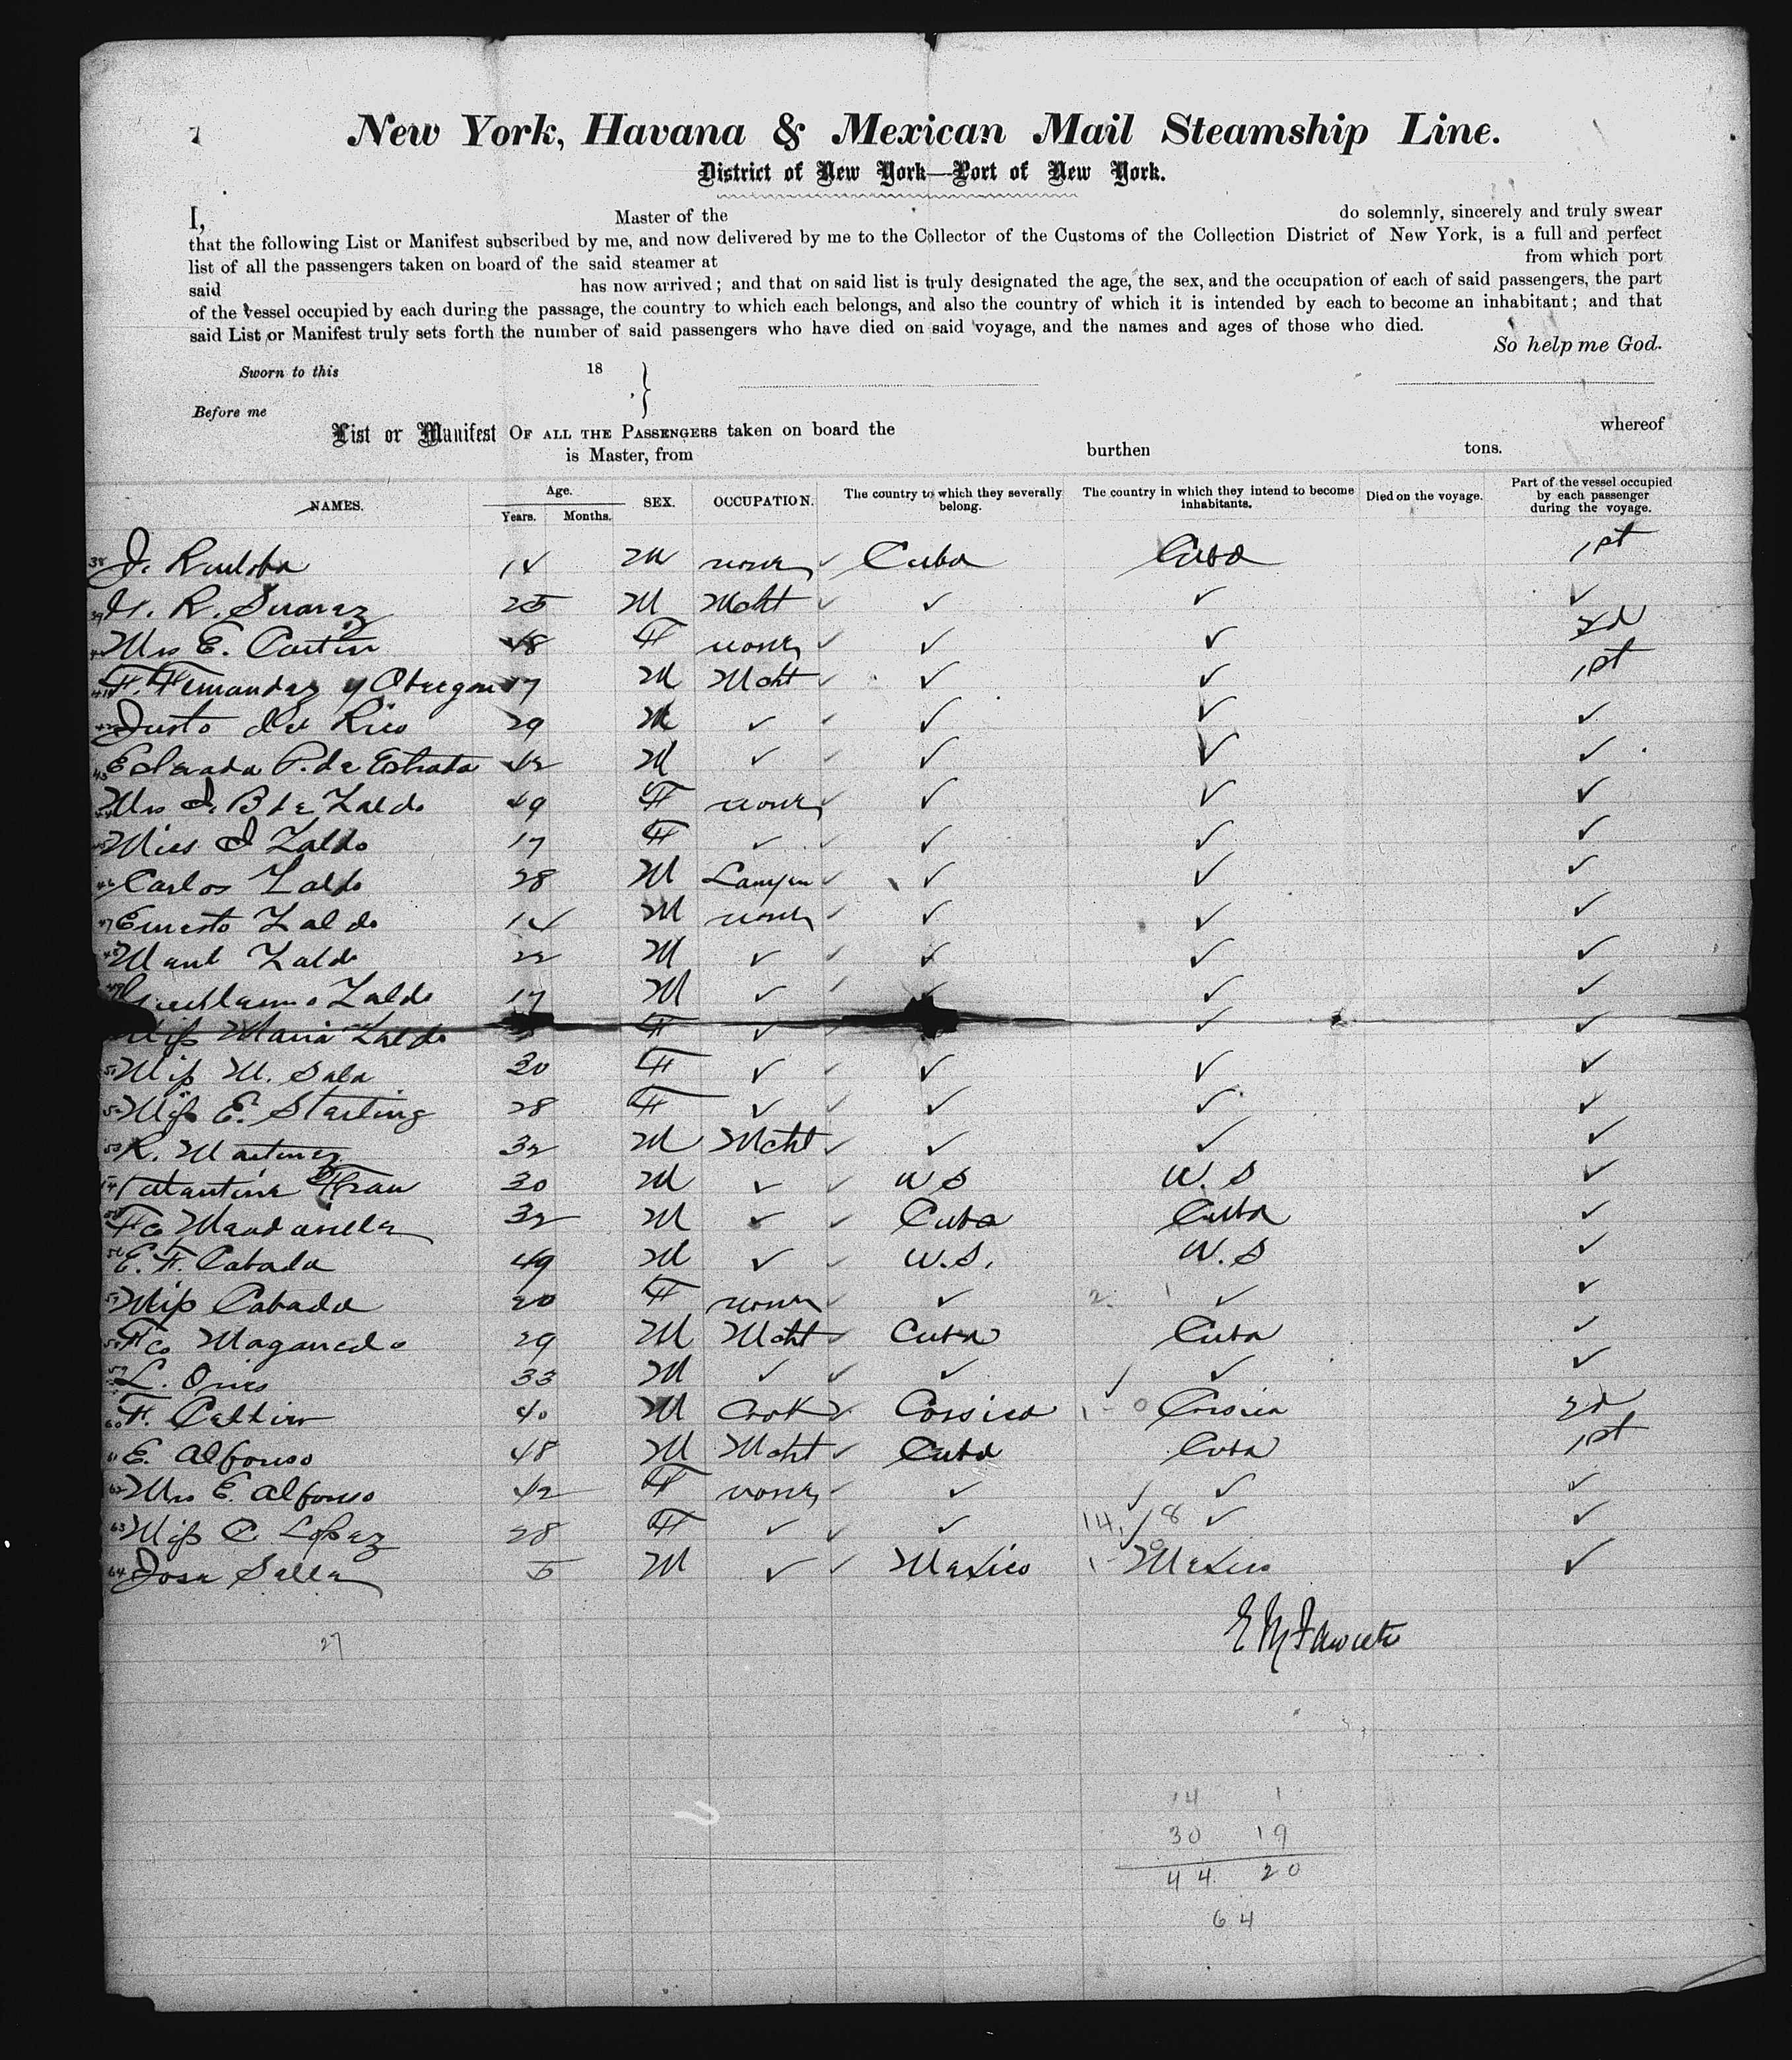 New York, Havana & Mexican Mail Steamship Line.
District of New York—Port of New York.
I, Master of the do solemnly, sincerely and truly swear
that the following List or Manifest subscribed by me, and now delivered by me to the Collector of the Customs of the Collection District of New York, is a full and perfect
list of all the passengers taken on board of the said steamer at from which port
said has now arrived; and that on said list is truly designated the age, the sex, and the occupation of each of said passengers, the part
of the vessel occupied by each during the passage, the country to which each belongs, and also the country of which it is intended by each to become an inhabitant; and that
said List or Manifest truly sets forth the number of said passengers who have died on said voyage, and the names and ages of those who died.
So help me God.
Sworn to this 18
Before me
List or Manifest OF ALL THE PASSENGERS taken on board the whereof
is Master, from burthen tons.
NAMES. Age. Years. Months. SEX. OCCUPATION. The country to which they severally belong. The country in which they intend to become inhabitants. Died on the voyage. Part of the vessel occupied by each passenger during the voyage.
38 J. 14 M none ✓ Cuba Cuba 1st
39 R. Suarez 25 M Mcht ✓ ✓ ✓ ✓
Mrs E. 48 F none ✓ ✓ ✓ 2d
41 F. Fernandez y Obregon 17 M Mcht ✓ ✓ ✓ 1st
42 Justo del Rico 29 M ✓ ✓ ✓ ✓ ✓
43 P. de Estrada 42 M ✓ ✓ ✓ ✓ ✓
44 Mrs J. B de Zaldo 49 F none ✓ ✓ ✓ ✓
45 Miss J Zaldo 17 F ✓ ✓ ✓ ✓ ✓
46 Carlos Zaldo 28 M Lawyer ✓ ✓ ✓ ✓
47 Ernesto Zaldo 14 M none ✓ ✓ ✓ ✓
48 Manl Zaldo 22 M ✓ ✓ ✓ ✓ ✓
49 Guillermo Zaldo 17 M ✓ ✓ ✓ ✓ ✓
Miss Maria Zaldo F ✓ ✓ ✓ ✓
51 Miss M. Sala 30 F ✓ ✓ ✓ ✓ ✓
52 Miss E. Starling 28 F ✓ ✓ ✓ ✓ ✓
53 R. Martinez 32 M Mcht ✓ ✓ ✓ ✓
54 30 M ✓ ✓ U S U. S ✓
55 Fco 32 M ✓ ✓ Cuba Cuba ✓
56 E. F. Cabada 49 M ✓ ✓ U.S. U.S ✓
57 Miss Cabada 20 F none ✓ ✓ 2. 1 ✓ ✓
58 Fco 29 M Mcht ✓ Cuba Cuba ✓
59 L. 33 M ✓ ✓ ✓ ✓ ✓ ✓
60 F. 40 M Cook ✓ Corsica 1 - 0 Corsica 2d
61 E. Alfonso 48 M Mcht ✓ Cuba Cuba 1st
62 Mrs E. Alfonso 42 F none ✓ ✓ ✓ ✓ ✓
63 Miss C. Lopez 28 F ✓ ✓ ✓ 14 / 8 ✓ ✓
64 Jose Sella 5 M ✓ ✓ Mexico 1 - 0 Mexico ✓
27
14 1
30 19
44. 20
64